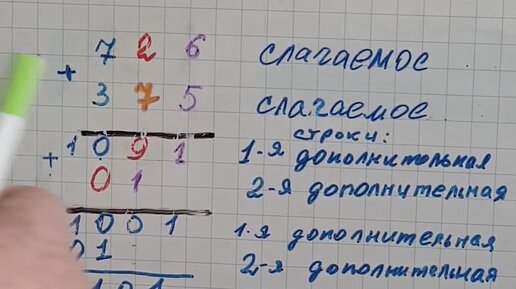 7 2 6 слагаемое
+
3 7 5 слагаемое
строки:
1 0 9 1 1-я дополнительная
+
0 1 2-я дополнительная
1 0 0 1 1-я дополнительная
0 1 2-я дополнительная
1 0 1